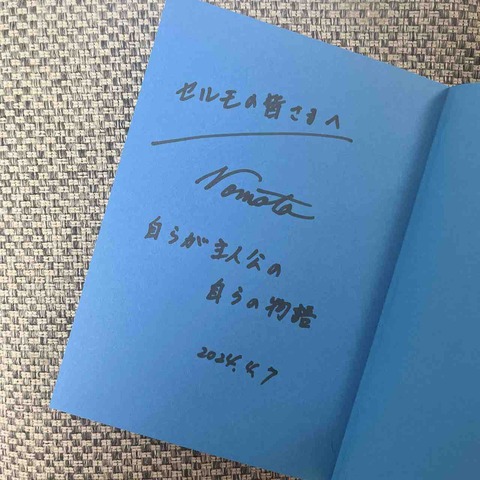 セルモの皆さまへ
Nomata
自らが主人公の
自らの物語
2024.4.7